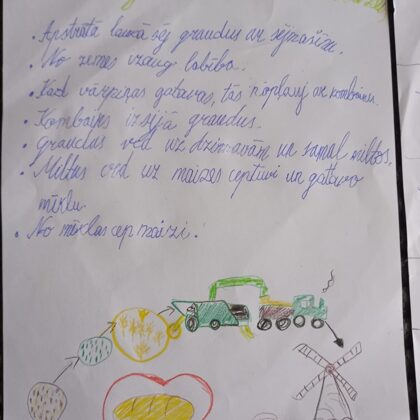 • Apstrādā laukā sēj graudus ar sējmašīnu.
• No zemes izaug labība.
• Kad vārpiņas gatavas, tās nopļauj ar kombainu.
• Kombains izsijā graudus.
• graudus ved uz dzirnavām un samaļ miltos.
• Miltus ved uz maizes ceptuvi un gatavo
mīklu.
• No mīklas cep maizi.